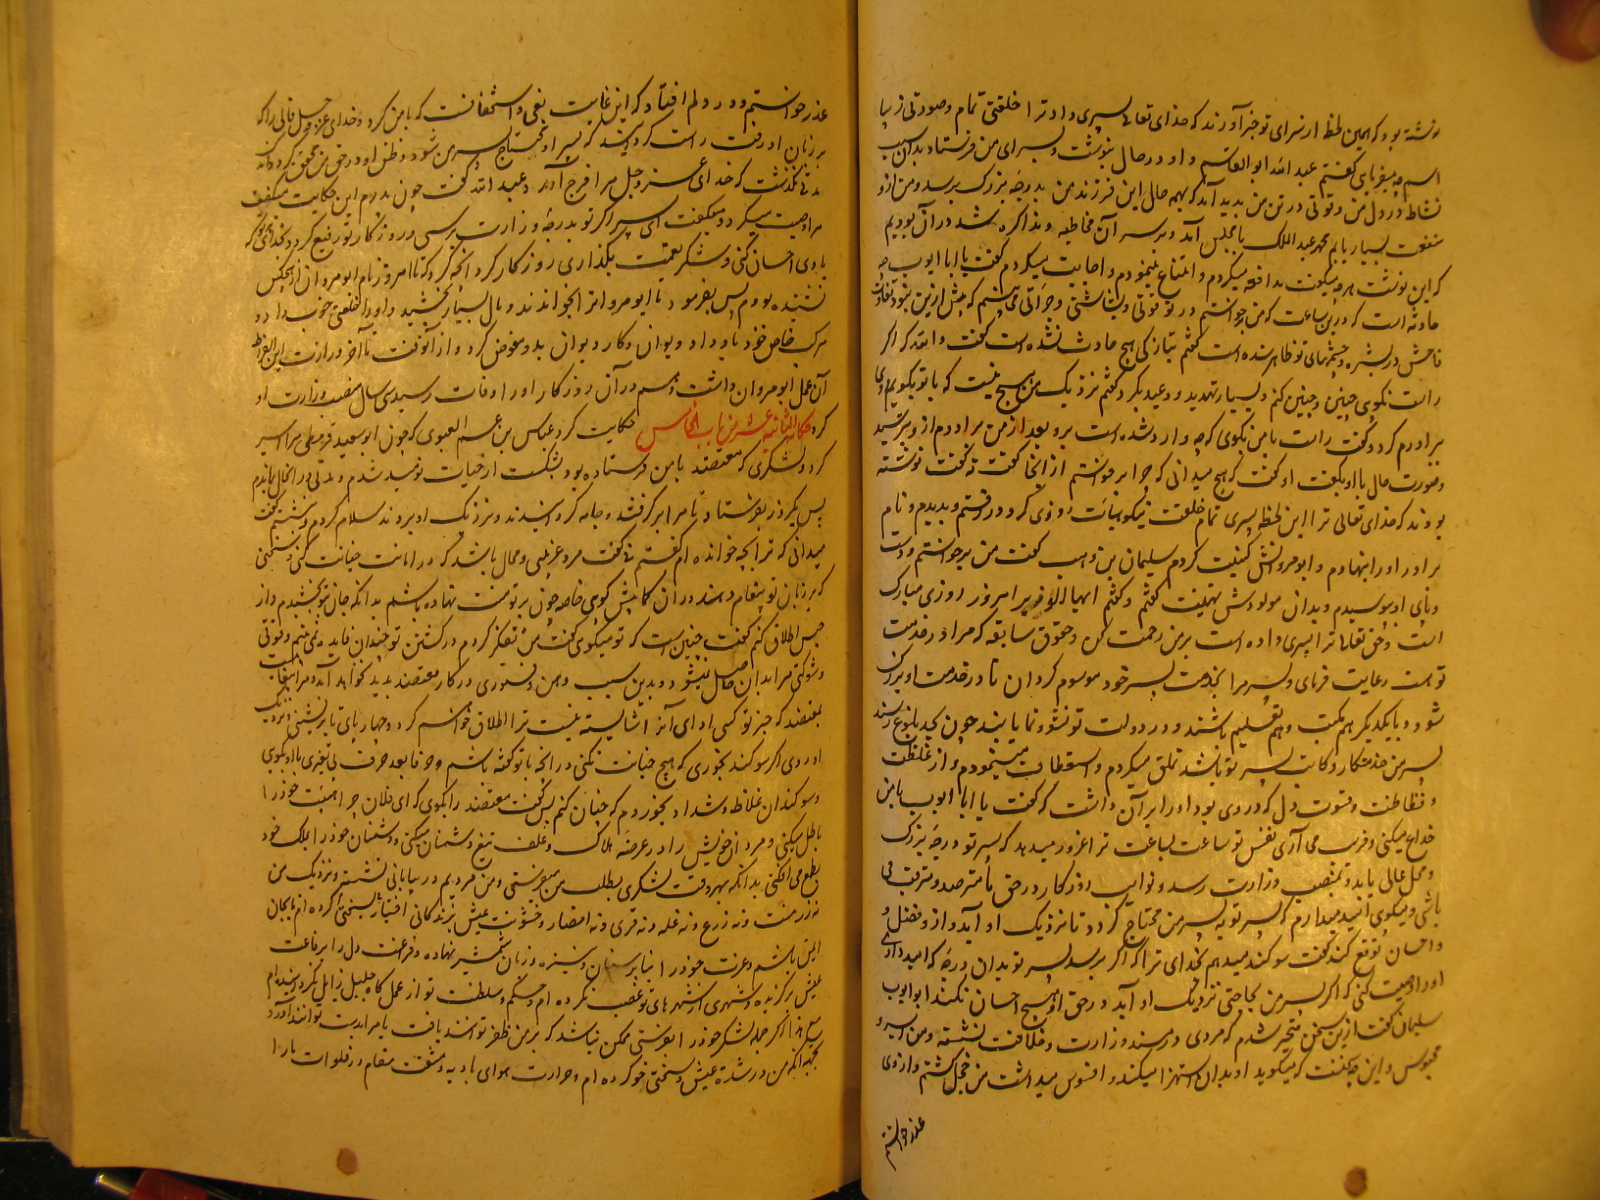 نوشته بود که همین لحظه از سرای تو خبر آوردند که خدای تعالی پسری داد ترا خلقتی تمام و صورتی زیبا
اسم چه میفرمایی گفتم عبد الله ابو القاسم و او در حال بنوشت و بسرای من فرستاد بدان سبب
نشاط در دل من و قوتی در تن من بدید آمد که بهمه حال این فرزند من بدرجه بزرگ برسد و من از و
منفعت بسیار یابم محمد عبد الملک با مجلس آمد و بر سر آن مخاطبه و مذاکره شد در آن بودیم
که این نوشت هر چه میگفت مدافعه میکردم و امتناع مینمودم و اجابت نمیکردم گفت یا ابا ایوب چه
حادثه است که درین ساعت که من برخواستم در تو قوتی و بشاشتی و جرأتی می بینم که پیش ازین نبود
فاحش در بشره و چشمهای تو ظاهر شده است گفتم بتازگی هیچ حادث نشده است گفت والله که اگر
راست نگویی چنین و چنین کنم و بسیار تهدید و وعید بکرد گفتم نزدیک من هیچ نیست که با تو بگویم
برادرم کرد و گفت راست با من بگوی که چه وارد شده است برو بعد از من برادرم از و بپرسید
وصورت حال با او بگفت او گفت که هیچ میدانی که چرا برخواستم از اینجا گفت نه گفت نوشته
بودند که خدای تعالی ترا این لحظه پسری تمام خلقت نیکوهیات روزی کرد در رفتم و بدیدم و نام
برادر او را بنهادم و ابو مروانش کنیت کردم سلیمان بن وهب گفت من برخواستم و دست
و پای او ببوسیدم و بدان مولودش تهنیت گفتم و گفتم ایها الوزیر امروز روزی مبارک
است و حق تعالی ترا پسری داده است بر من رحمت کن و حقوق سابقه که مرا در خدمت
تو هست رعایت فرمای و پسر مرا بخدمت پسر خود موسوم گردان تا در خدمت او بزرگ
شود و با یکدیگر هم مکتب و هم تعلیم باشند و در دولت تو نشو و نما یابند چون بحد بلوغ رسند
پسر من خدمتکار و کاتب پسر تو باشد تملق میکردم و استعطاف مینمودم و از غلظت
و فظاظت و قسوت دل که در وی بود او را بر آن داشت که گفت یا ابا ایوب با من
خداع میکنی و فریب می آری نفس تو ساعت بساعت ترا غرور میدهد که پسر تو درجه بزرگ
و محل عالی یابد و بمنصب وزارت رسد و نوایب روزگار در حق ما مترصد و مترقب می
باشی و میگوی امید میدارم که پسر تو به پسر من محتاج گردد تا نزدیک او آید و از و فضل
و احسان توقع کند گفت سوگند میدهم بخدای ترا که اگر برسد پسر تو بدان درجه که امید داری
او را وصیت کنی که اگر پسر من بحاجتی نزدیک او آید در حق او هیچ احسان نکند ابو ایوب
سلیمان گفت ازین سخن متحیر شدم که مردی در مسند وزارت و خلافت نشسته و من اسیر و
محبوس و این چه سخنست که میگوید او بدان استهزا میکند و افسوس میداشت من خجل گشتم و از وی
عذر خواستم
عذر خواستم و در دلم افتاد که این غایت بغی و استخفافست که با من کرد و خدای عز و جل فالی را که
بر زبان او رفت راست گرداند که پسر او محتاج پسر من شود و ظن او در حق من محقق گرداند
مدتی نگذشت که خدای عز و جل مرا فرج آورد و عبد الله گفت چون پدرم این حکایت میگفت
مرا وصیت میکرد و میگفت ای پسر اگر تو بدرجه وزارت برسی و روزگار تو رفیع گردد
با وی احسان کنی و شکر نعمت بگذاری روزگار کرد آنچه کرد که تا امروز نام ابو مروان از هیچکس
نشنده بودم پس بفرمود تا ابو مروانرا بخواندند و مال بسیار بخشید و او را خلعتی خوب داد و
مرکب خاص خود باو داد و دیوان و کار دیوان بدو مفوض کرد و از آنوقت تا آخر وزارت
آن عمل ابو مروان داشت و هم در آن روزگار او را وفات رسید سی سال منصب وزارت او
کرد حکایة الثانیه عشر من باب الخامس حکایت کرد عباس بن عمر الغنوی که چون ابو سعید قرمطی مرا اسیر
کرد و لشکری که معتضد با من فرستاده بود بشکست از حیات نومید شدم و مدتی در آنحال بماندم
پس یک روز بفرستاد تا مرا برگرفتند و جامه گردانیدند و نزدیک او بردند سلام کردم و بنشستم گفت
میدانی که ترا بچه خوانده ام گفتم نی گفت مرد عربی و محال باشد که در امانت خیانت کنی
که بر زبان تو پیغام دهند در آن کم بیش گویی خاصه چون بر تو منت نهاده باشم بدانکه جان بتو بخشیدم و از
حبس اطلاق کنم گفت چنین است که تو میگوی گفت من تفکر کردم در کشتن تو چندان فایده نمی بینم و قوتی
و شوکتی مرا بدان حاصل نمیشود و بدین سبب وهن و فتوری در کار معتضد بدید نخواهد آمد
بمعتضد که جز تو کسی ادای آنرا شایسته نیست ترا اطلاق خواهم کرد و چهار پای تا برنشینی و نزدیک
او روی اگر سوگند بخوری که هیچ خیانت نکنی در آنچه با تو گفته باشم و حرفا بعد حرف بی تغییری با او بگوی
و سوگندان غلاظ و شداد بخوردم که چنان کنم پس گفت معتضد را بگوی که ای فلان چرا هیبت خود را
باطل میکنی و مرد از خویش را در عرضه هلاک و علف تیغ دشمنان میکنی و دشمنان خود را بملک خود
بطمع می افکنی بدانکه بهر وقت لشکری بطلب من میفرستی و من مردیم در بیابانی نشسته و نزدیک من
نه زرعست و نه زرع و نه غله و نه قری و نه امصار و خشونت عیش بزندگانی اختیار کرده ام تا بجان
ایمن باشم و عزت خود را بنیاد بر سنان نیزه و زبان شمشیر نهاده و فرغت دل را بر رفاعت
عیش برگزیده و شهری از شهرهای تو غصب نکرده ام و حکم و سلطنت تو از عمل جلیل زایل نگردانیده ام
مع هذا اگر جمله لشکر خود را بفرستی ممکن نباشد که بر من ظفر توانند یافت یا مرا بدست توانند آورد
بجهة آنکه من در شده عیش و سختی خو کرده ام و حرارت هوای بادیه و مشقت مقام در فلوات بارها